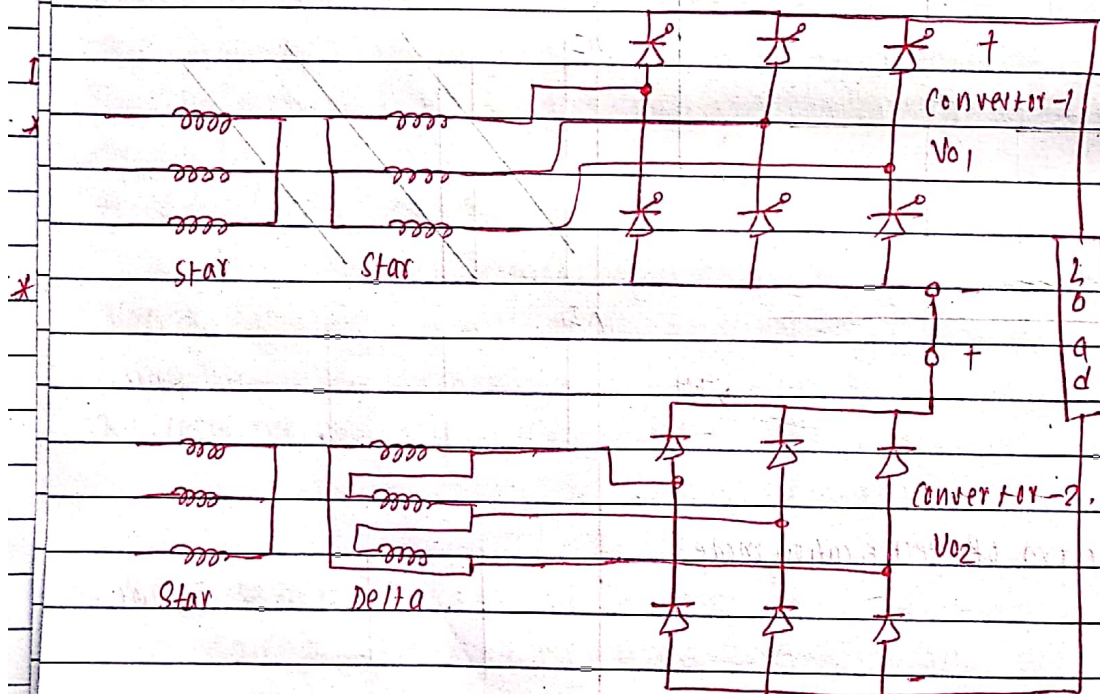 +
Convertor-1
Vo1
Star
Star
-
Load
+
Convertor-2.
Vo2
Star
Delta.
-